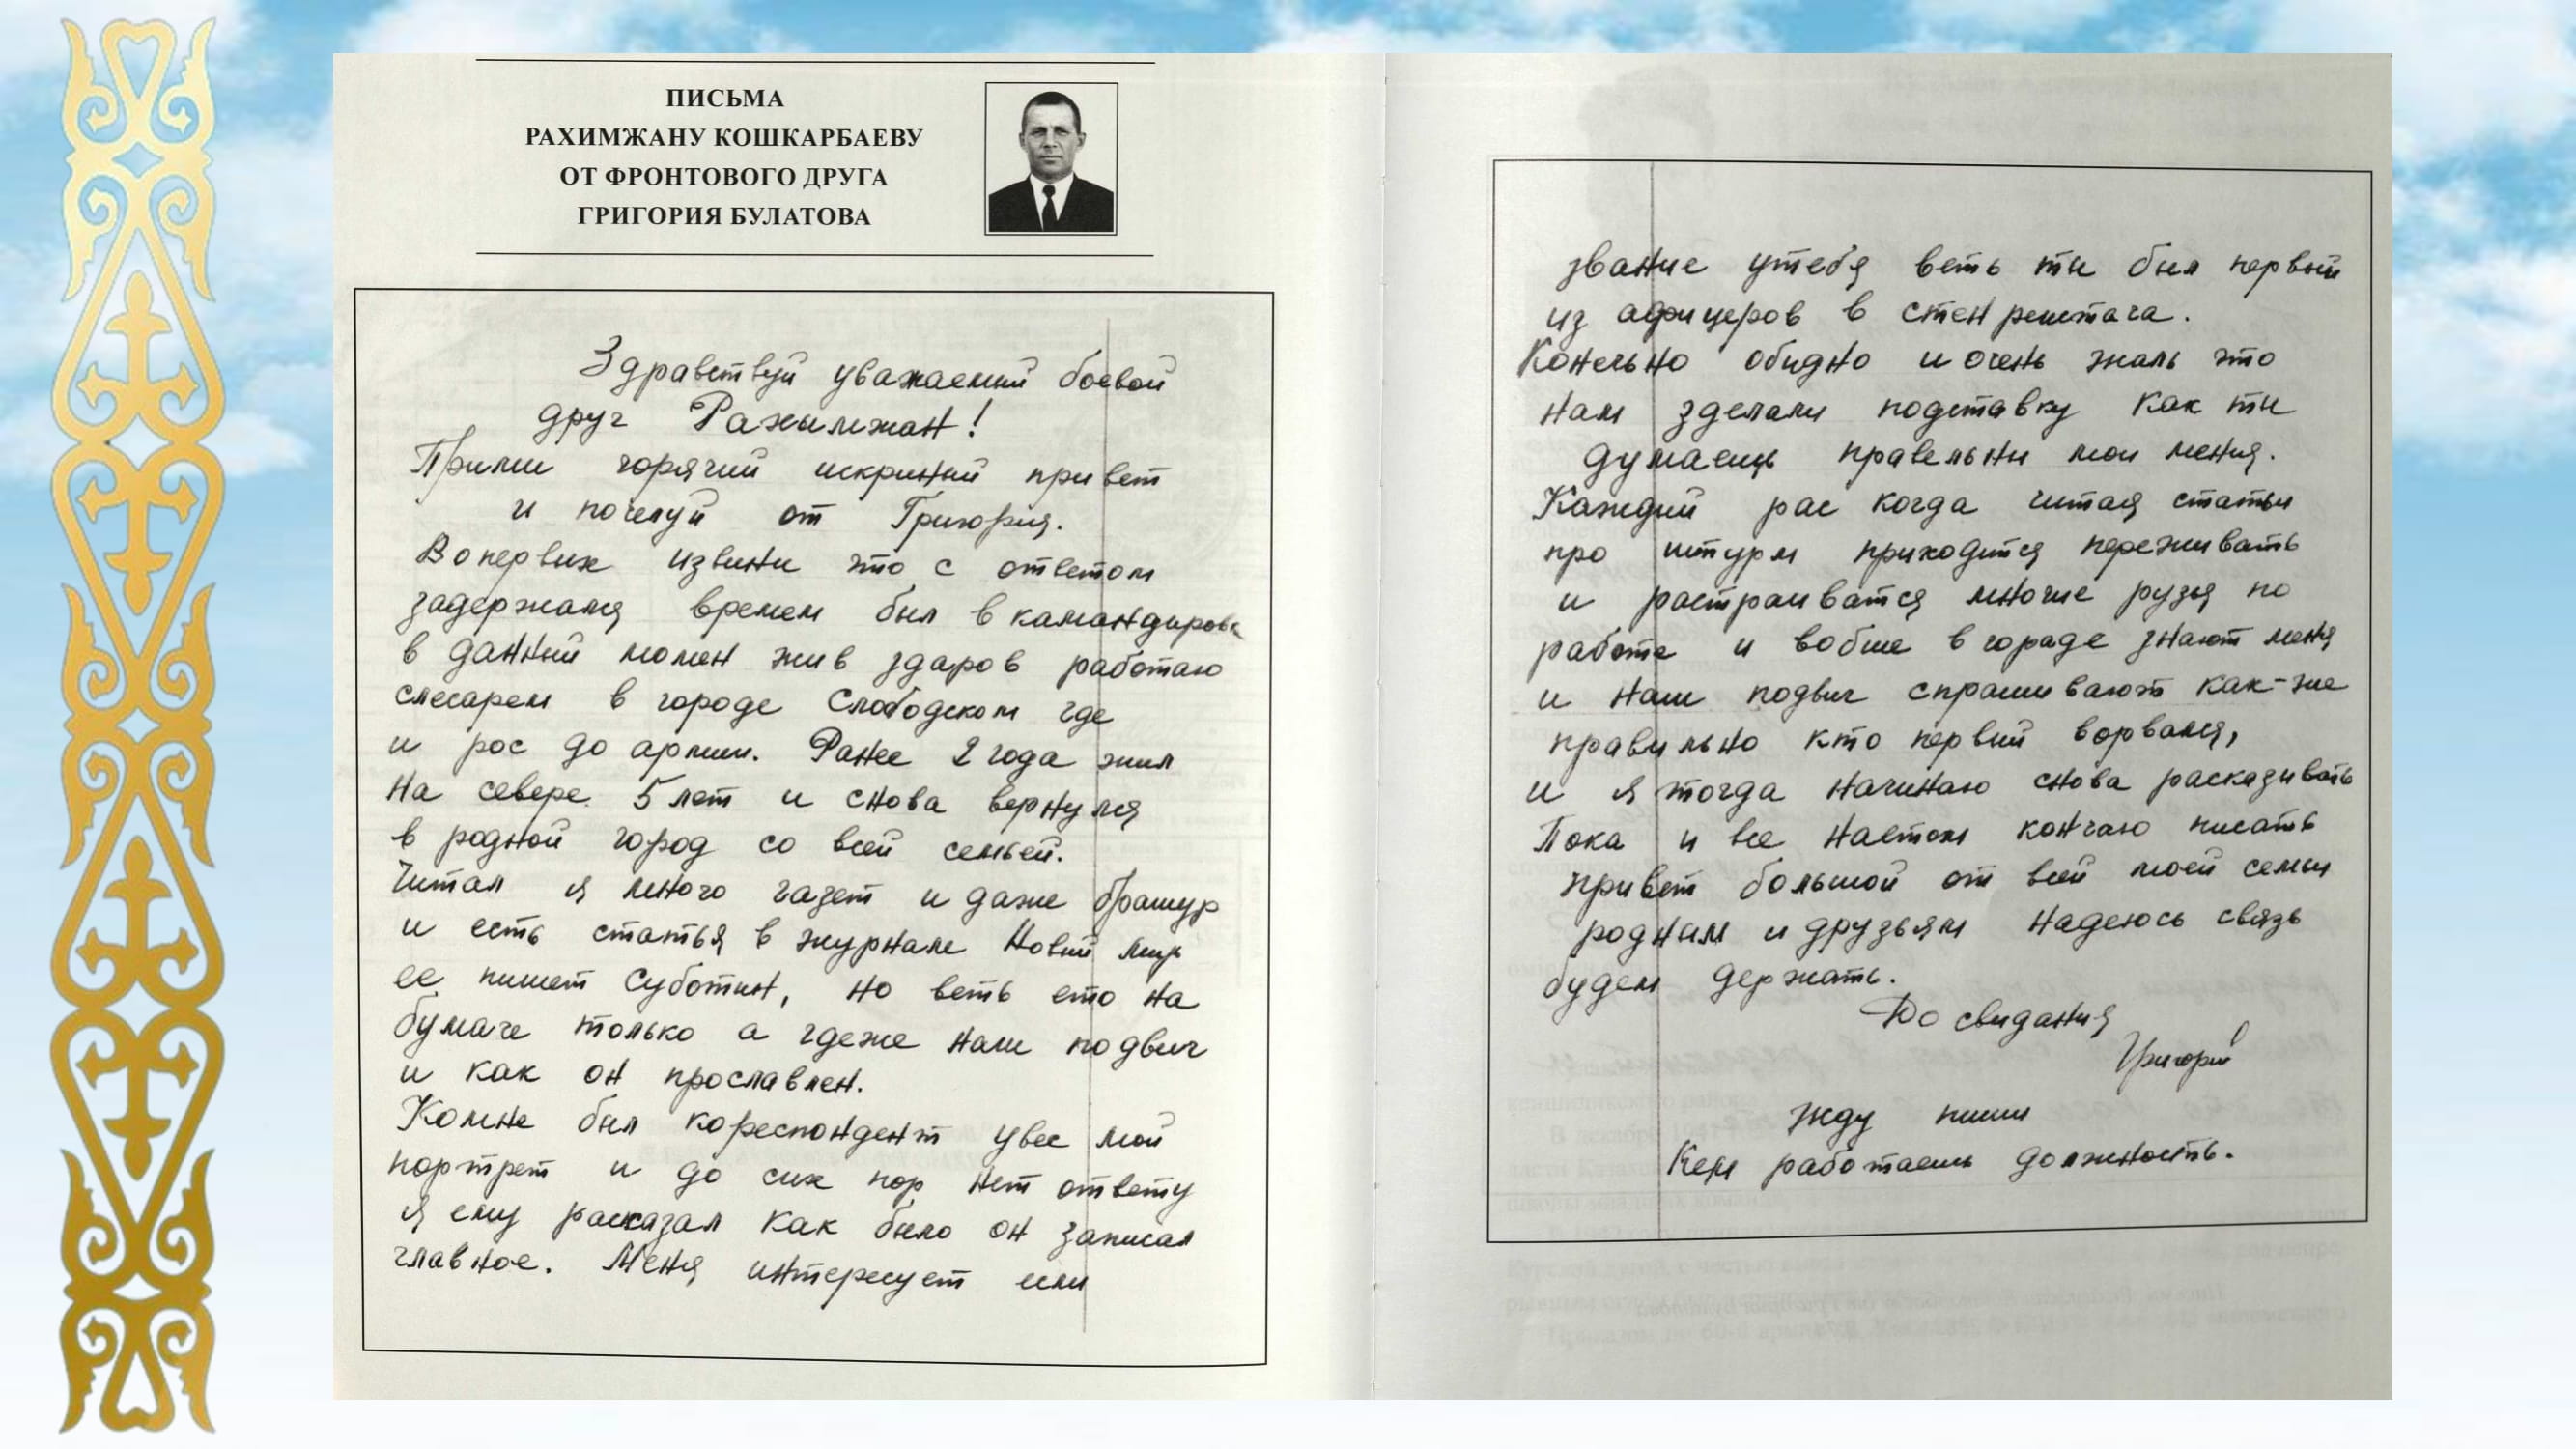 ПИСЬМА
РАХИМЖАНУ КОШКАРБАЕВУ
ОТ ФРОНТОВОГО ДРУГА
ГРИГОРИЯ БУЛАТОВА
Здравствуй уважаемый боевой
друг Рахымжан!
Прими горячий искриный привет
и поцелуй от Григория.
Вопервых извини что с ответом
задержался времем был в камандировк
в данный момен жив здаров работаю
слесарем в городе Слободском где
и рос до армии. Ранее 2 года жил
на севере 5 лет и снова вернулся
в родной город со всей семьей.
Читал я много газет и даже брашур
и есть статья в журнале Новый мир
ее пишет Суботин, но веть ето на
бумаге только а гдеже наш подвиг
и как он прославлен.
Комне был кореспондент увес мой
портрет и до сих пор нет ответу
я ему расказал как было он записал
главное. Меня интересует если
звание утебя веть ты был первый
из афицеров в стен рештага.
Конечьно обидно и очень жаль что
нам зделали подставку как ты
думаешь правельны мои мения.
Каждый рас когда читая статьи
про штурм приходится переживать
и растраиватся многие рузья по
работе и вобше в гораде знают меня
и наш подвиг спрашивают как-же
правильно кто первый ворвался,
и я тогда начинаю снова расказывать
Пока и все наетом кончаю писать
привет большой от всей моей семьи
родным и друзьям надеюсь связь
будем держать.
До свидания
Григорий
Жду пиши
Кем работаешь должность.